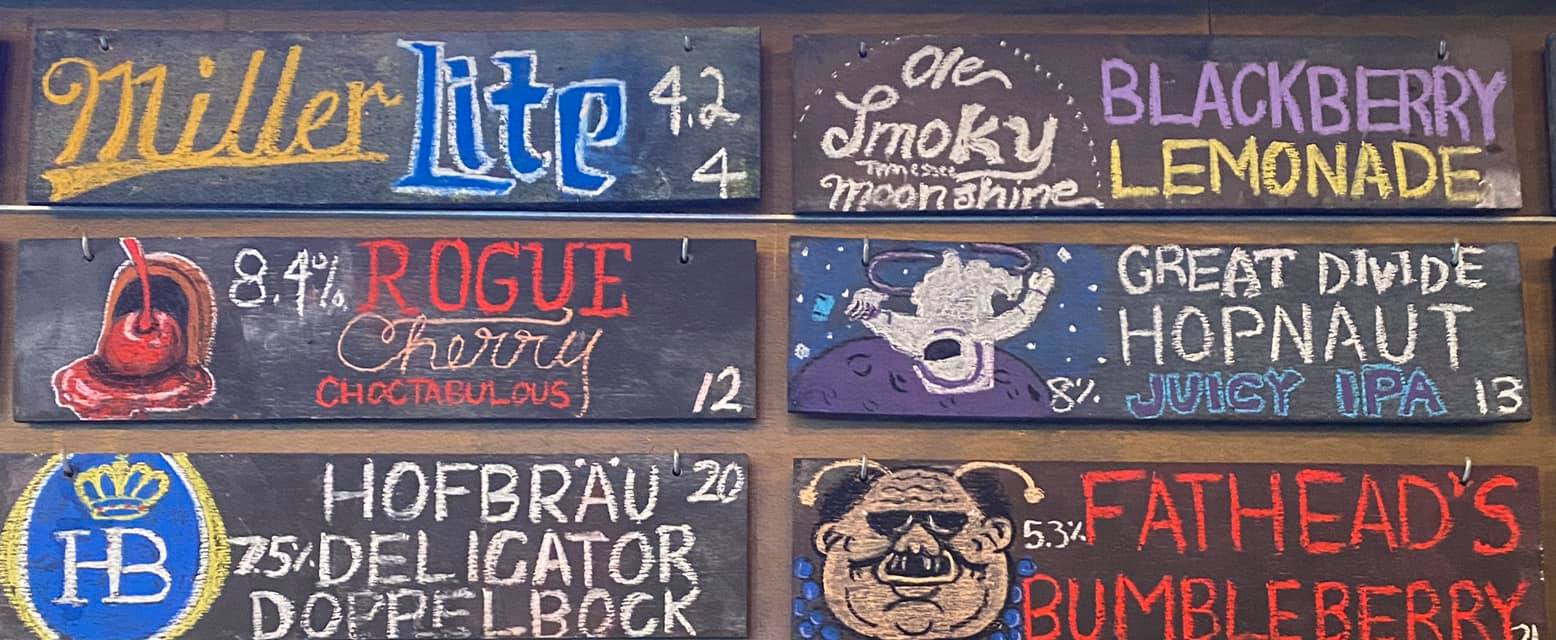 Miller Lite 4.2
4
Ole
Smoky
Tennessee
Moonshine
BLACKBERRY
LEMONADE
8.4% ROGUE
Cherry
CHOCTABULOUS
12
GREAT DIVIDE
HOPNAUT
8% JUICY IPA 13
HB
HOFBRÄU 20
7.5% DELICATOR
DOPPELBOCK
5.3% FATHEAD'S
BUMBLEBERRY